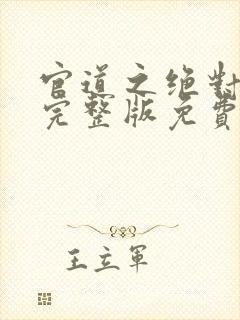 官道之绝對
完整版免費
王立軍